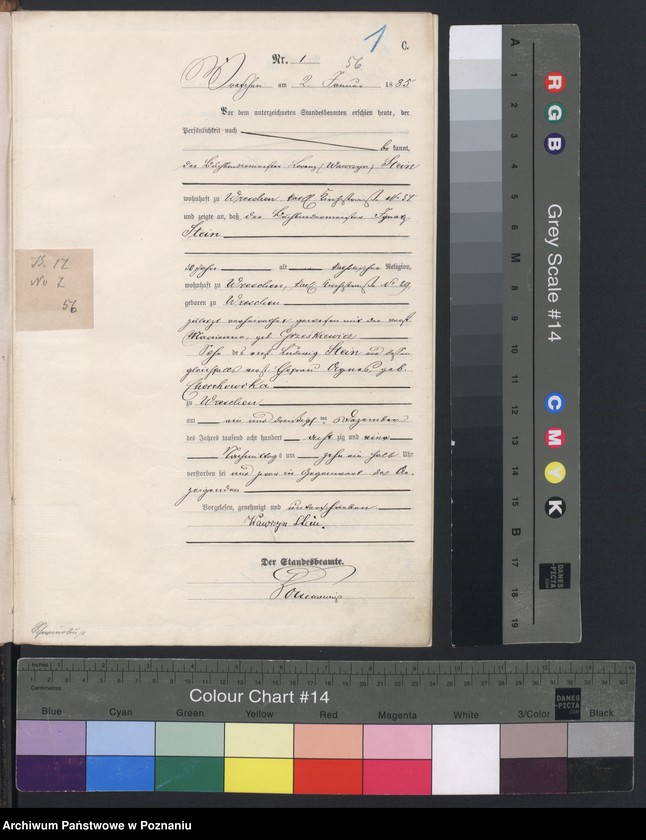 1 C.
Nr. 1
56
Wreschen am 2. Januar 1885
Vor dem unterzeichneten Standesbeamten erschien heute, der
Persönlichkeit nach
be kannt,
der Buchbindermeister Lorenz (Wawrzyn) Stein
wohnhaft zu Wreschen,
und zeigte an, daß der Buchbindermeister Ignatz
Stein
50 Jahre alt katholischer Religion,
wohnhaft zu Wreschen, No 29,
geboren zu Wreschen
zuletzt verheirathet gewesen mit der
Marianna, geb.
Sohn des Ludwig Stein und dessen
gleichfalls Ehefrau Agnes, geb.
zu Wreschen
am ein und dreißigsten Dezember
des Jahres tausend acht hundert acht zig und vier
Nachmittags um zehn ein halb Uhr
verstorben sei und zwar in Gegenwart des An-
zeigenden
Vorgelesen, genehmigt und unterschrieben
Wawrzyn Stein.
Der Standesbeamte.
B. 17
No 2
56
A 1 2 3 4 5 6 M 8 9 10 11 12 13 14 15 B 17 18 19
R G B
Grey Scale #14
C M Y K
DANES
-PICTA
Inches
Centimetres
Colour Chart #14
DANES
-PICTA
Blue Cyan Green Yellow Red Magenta White 3/Color Black
Archiwum Państwowe w Poznaniu